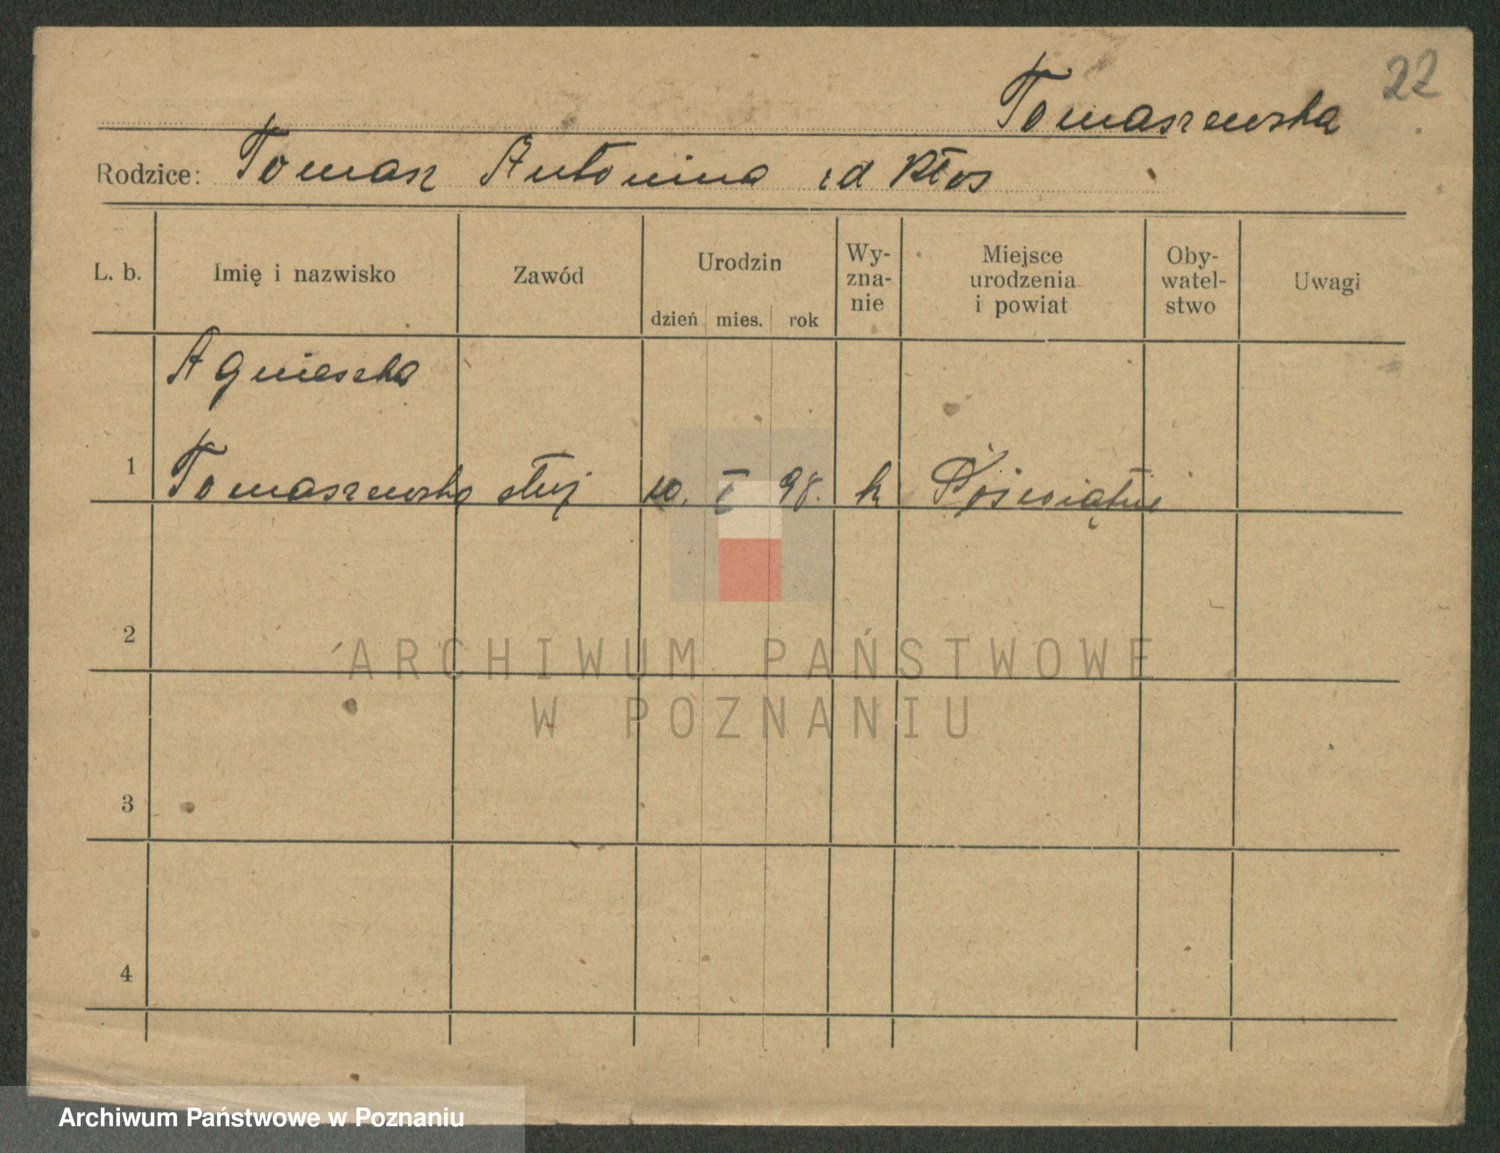 22
Tomaszewska
Rodzice: Tomasz Antonina zd Kłos
L. b.
Imię i nazwisko
Zawód
Urodzin
dzień mies. rok
Wy-
zna-
nie
Miejsce
urodzenia
i powiat
Oby-
watel-
stwo
Uwagi
Agnieszka
1 Tomaszewska służ 10. I 98. k
2
3
4
ARCHIWUM PAŃSTWOWE
W POZNANIU
Archiwum Państwowe w Poznaniu